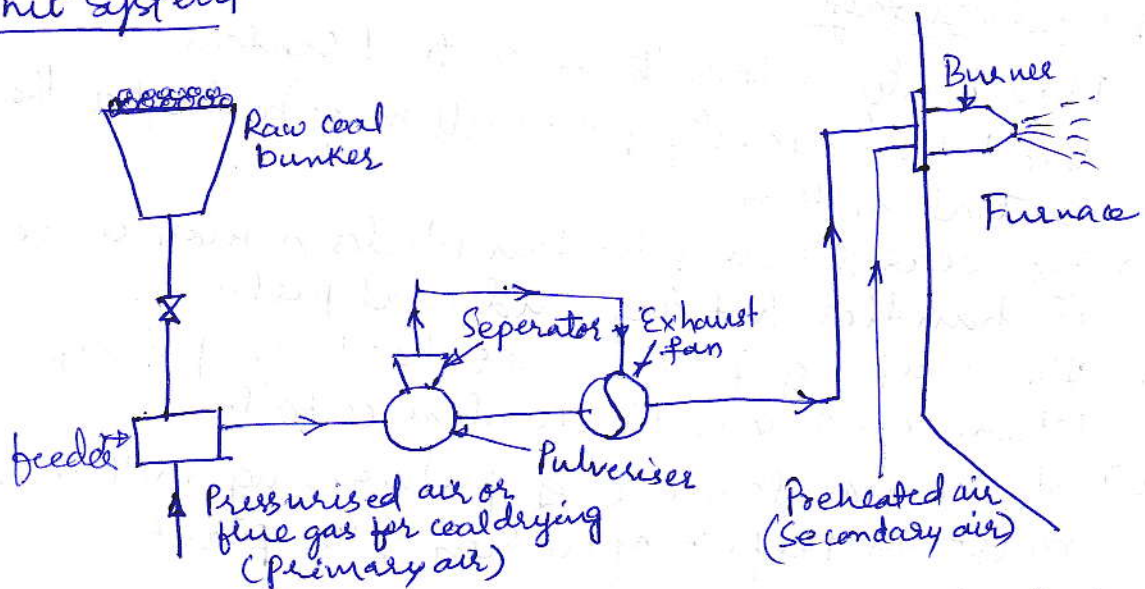 system
Raw coal
bunker
Burner
Furnace
Seperator
Exhaust
fan
feeder
Pulveriser
Pressurised air or
flue gas for coal drying
(Primary air)
Preheated air
(Secondary air)